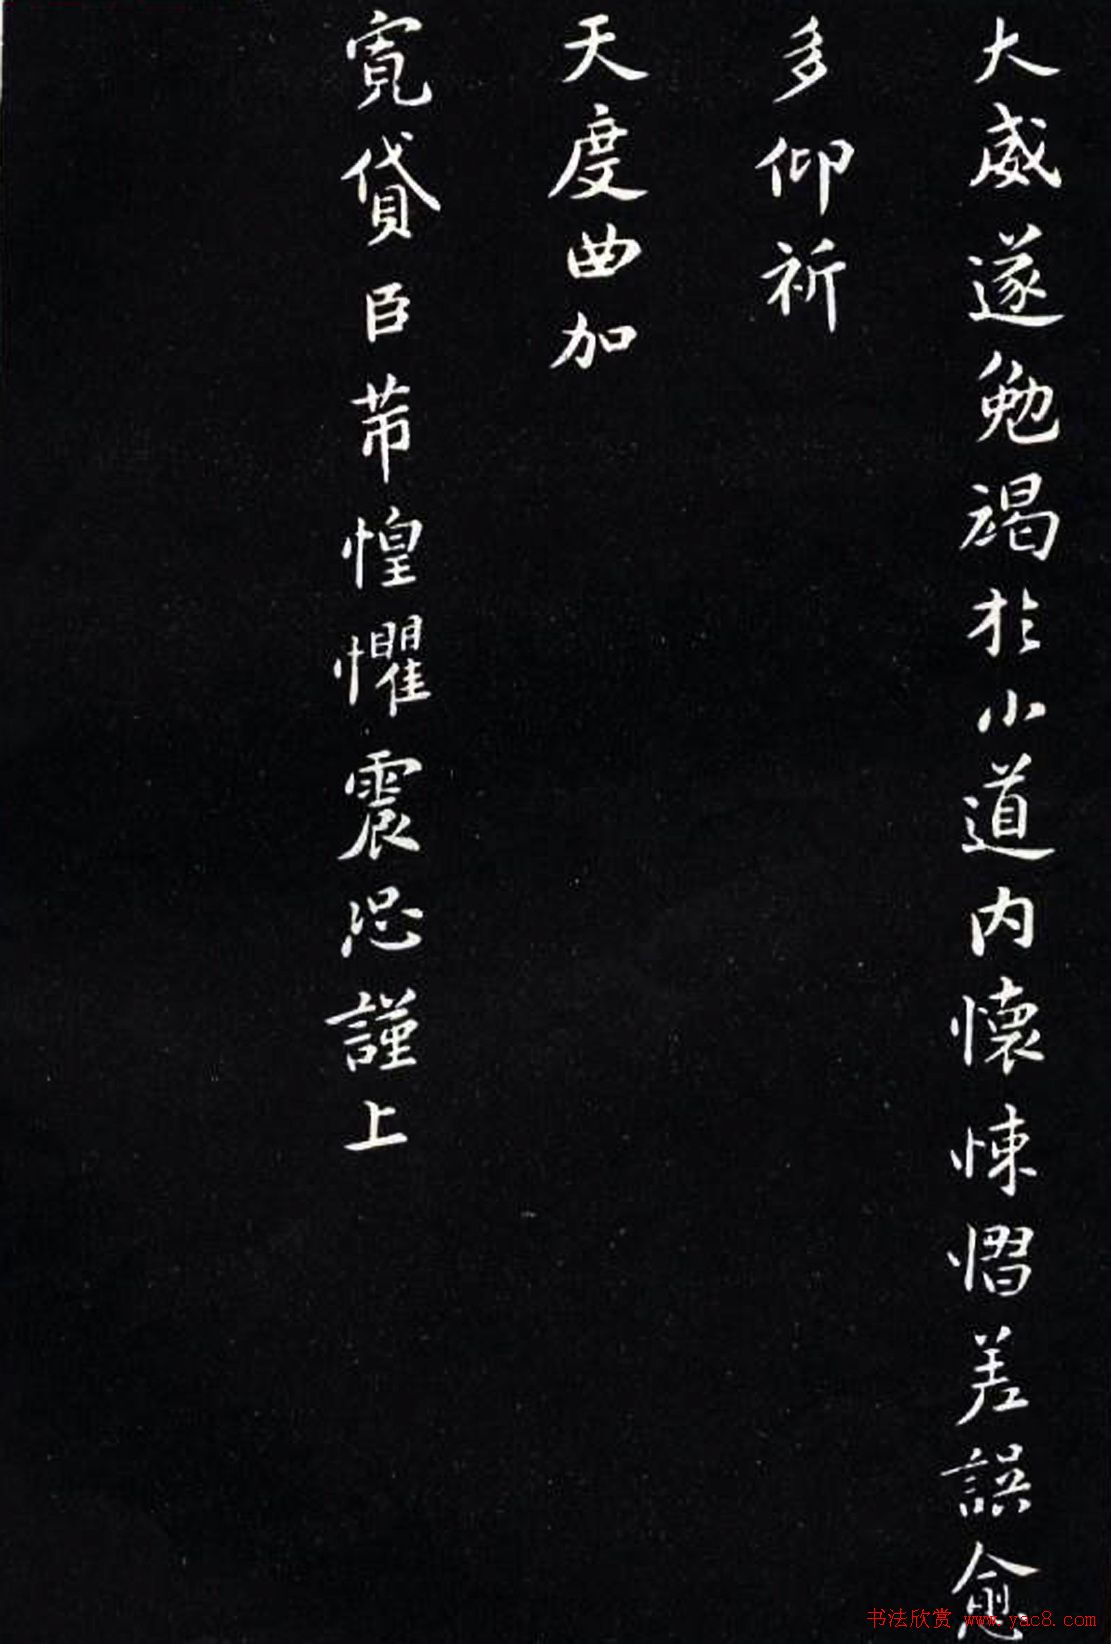 大威遂勉竭於小道内懷悚慴差誤愈
多仰祈
天度曲加
寬貸臣芾惶懼震恐謹上
书法欣赏 www.yac8.com